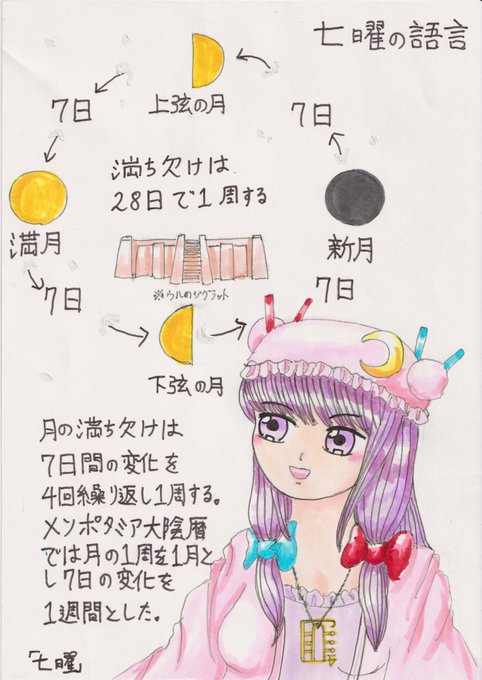 七曜の語言
上弦の月
7日
7日
満ち欠けは
28日で1周する
満月
新月
※ウルのジグラット
7日
7日
下弦の月
月の満ち欠けは
7日間の変化を
4回繰り返し1周する。
メソポタミア太陰暦
では月の1周を1月と
し7日の変化を
1週間とした。
「七曜」